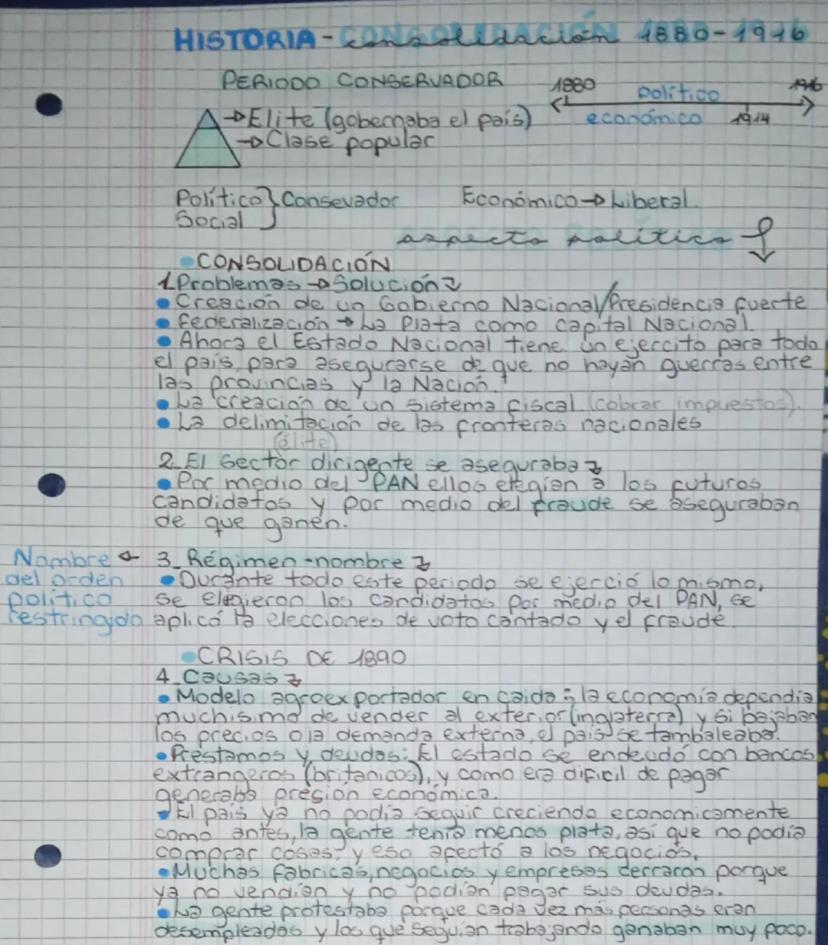 HISTORIA - consolidación 1880-1916
PERIODO CONSERVADOR
1880 político 1916
económico 1914
→Elite (gobernaba el país)
→Clase popular
Político } Consevador
Social
Económico→Liberal
aspecto político
•CONSOLIDACIÓN
1. Problemas → Solución
• Creación de un Gobierno Nacional/Presidencia fuerte
• Federalización → La Plata como capital Nacional.
• Ahora el Estado Nacional tiene un ejercito para todo
el país, para asegurarse de que no hayan guerras entre
las provincias y la Nación.
• La creación de un sistema fiscal (cobrar impuestos).
• La delimitación de las fronteras nacionales
(élite)
2. El sector dirigente se aseguraba
• Por medio del PAN ellos elegian a los futuros
candidatos y por medio del fraude se aseguraban
de que ganen.
3. Régimen-nombre
Nombre
del orden
político
restringido
• Durante todo este periodo se ejerció lo mismo,
se eligieron los candidatos por medio del PAN, se
aplicó la elecciones de voto cantado y el fraude
•CRISIS DE 1890
4. Causas
• Modelo agroexportador en caida: la economía dependia
muchisimo de vender al exterior (inglaterra) y si bajaban
los precios o la demanda externa, el país se tambaleaba.
• Préstamos y deudas: El estado se endeudó con bancos
extrangeros (britanicos), y como era dificil de pagar
generaba presión económica.
• El país ya no podia seguir creciendo economicamente
como antes, la gente tenia menos plata, asi que no podia
comprar cosas, y eso afectó a los negocios.
• Muchas fabricas, negocios y empresas cerraron porque
ya no vendian y no podian pagar sus deudas.
• La gente protestaba porque cada vez más personas eran
desempleados y los que seguian trabajando ganaban muy poco.